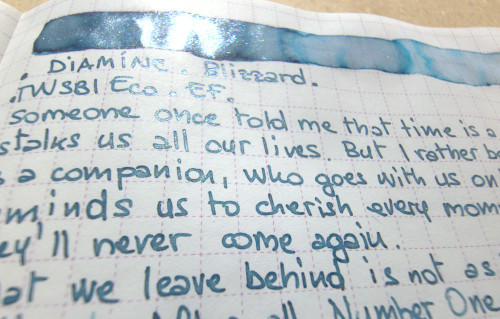 . DiAMiNE . Blizzard.
.TWSBI Eco . EF.
someone once told me that time is a
stalks us all our lives. But I rather be
s a companion, who goes with us on
minds us to cherish every mom
ey'll never come again.
at we leave behind is not as
After all, Number One